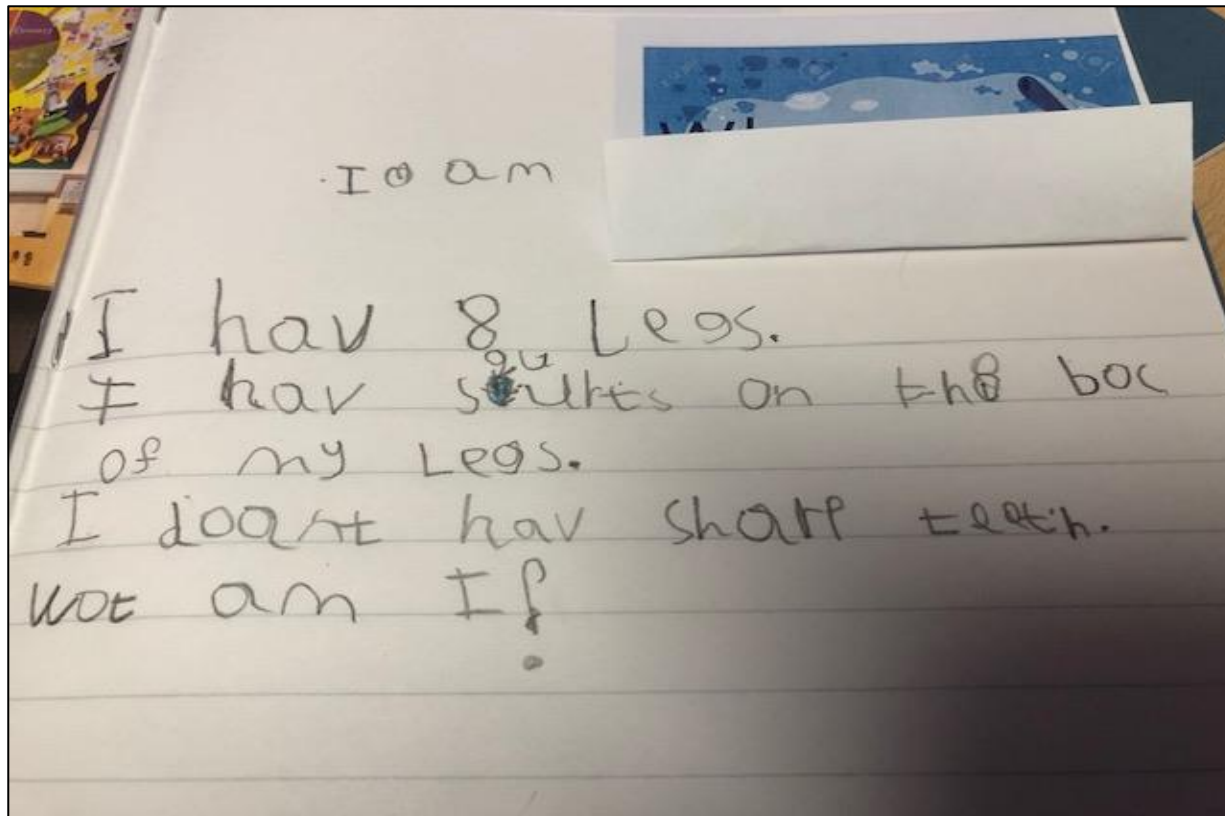 I am
I hav 8 Legs.
I hav on the boc
of my Legs.
I doant hav sharp teeth.
wot am I?